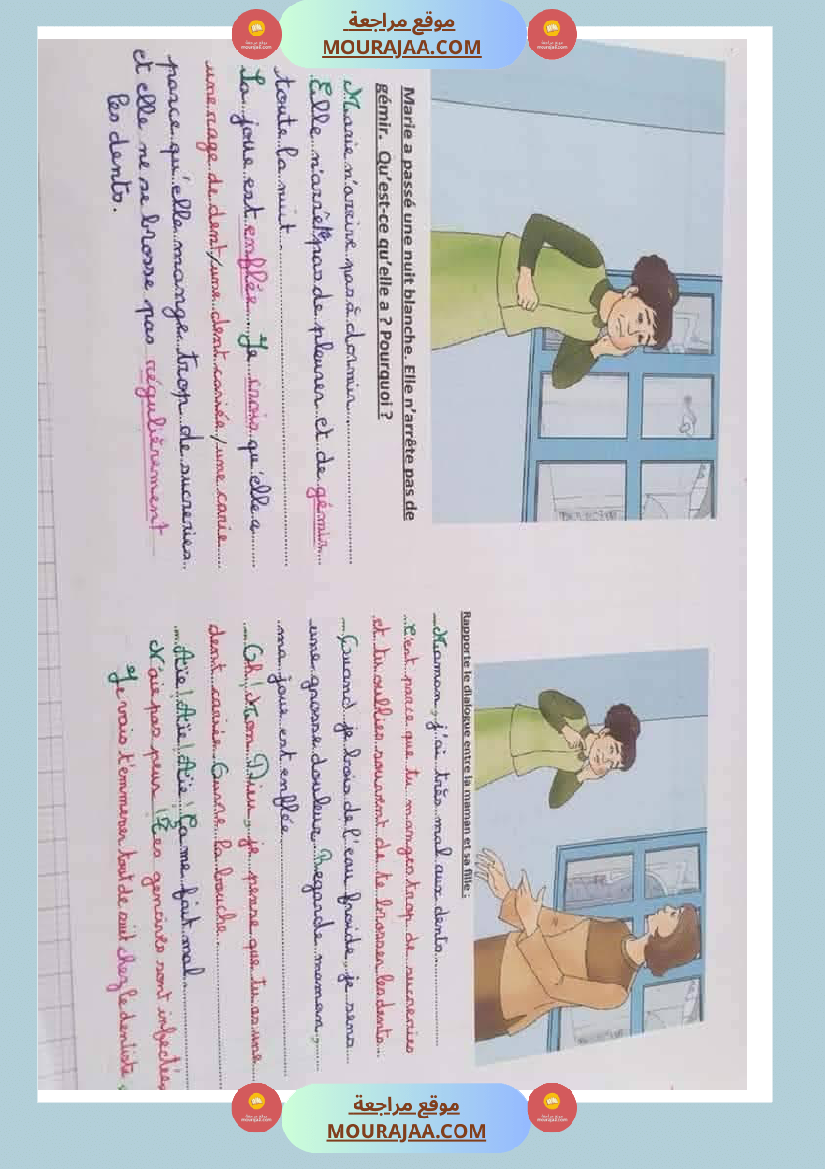 موقع مراجعة
MOURAJAA.COM
Marie a passé une nuit blanche. Elle n'arrête pas de
gémir. Qu'est-ce qu'elle a ? Pourquoi ?
Marie n'arrive pas à dormir
Elle n'arrête pas de pleurer et de gémir
toute la nuit.
Sa joue est enflée. Je crois qu'elle a
une rage de dent / une dent cariée / une carie
parce qu'elle mange trop de sucreries
et elle ne se brosse pas régulièrement
les dents.
Rapporte le dialogue entre la maman et sa fille :
_Maman, j'ai très mal aux dents.
_C'est parce que tu manges trop de sucreries
et tu oublies souvent de te brosser les dents.
_Quand je bois de l'eau froide, je sens
une grosse douleur. Regarde maman,
ma joue est enflée.
_Oh! Mon Dieu, je pense que tu as une
dent cariée. Ouvre la bouche.
_Aïe! Aïe! Aïe! Ça me fait mal.
N'aie pas peur! Tes gencives sont infectées
Je vais t'emmener tout de suit chez le dentiste.
موقع مراجعة
MOURAJAA.COM